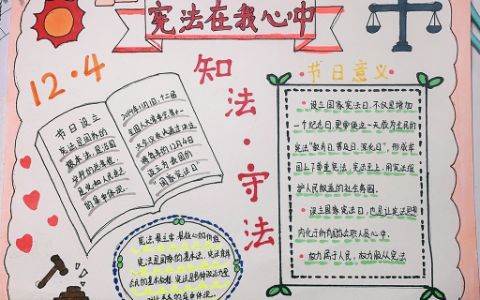 宪法在我心中
12·4
知法·守法
节日设立
宪法是国家的
根本法,是治国
安邦的总章程
是党和人民意志
的集中体现。
2014年11月1日,十二届
全国人大常委会第十
一次会议
将每年的12月4日
设立为我国的
国家宪法日
节日意义
设立国家宪法日,不仅是增加
一个纪念日,更要使这一天成为全民的
宪法“教育日、普及日、深化日”,形成举
国上下尊重宪法、宪法至上、用宪法维
护人民权益的社会氛围。
设立国家宪法日,也是让宪法思维
内化于所有国家公职人员心中。
权力属于人民,权力服从宪法
宪法是国家的根本法